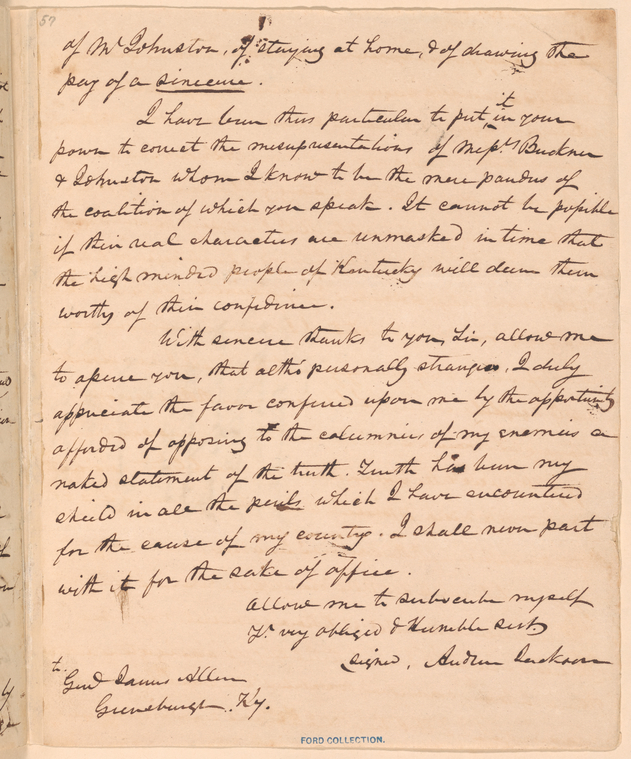 57
of Mr Johnston, of staying at home, & of drawing the
pay of a sinecure.
I have been thus particular to put it in your
power to correct the misrepresentations of Messrs Buckner
& Johnston whom I know to be the mere pandres of
the coalition of which you speak. It cannot be possible
if their real characters are unmasked in time that
the high minded people of Kentucky will deem them
worthy of their confidence.
With sincere thanks to you, Sir, allow me
to assure you, that altho' personally strangers, I duly
appreciate the favor conferred upon me by the opportunity
afforded of opposing to the calumnies of my enemies a
naked statement of the truth. Truth has been my
shield in all the perils which I have encountered
for the cause of my country. I shall never part
with it for the sake of office.
Allow me to subscribe myself
Yr very obliged & Humble Sert.
signed, Andrew Jackson
to
Genl James Allen
Greensburgh. Ky.
FORD COLLECTION.